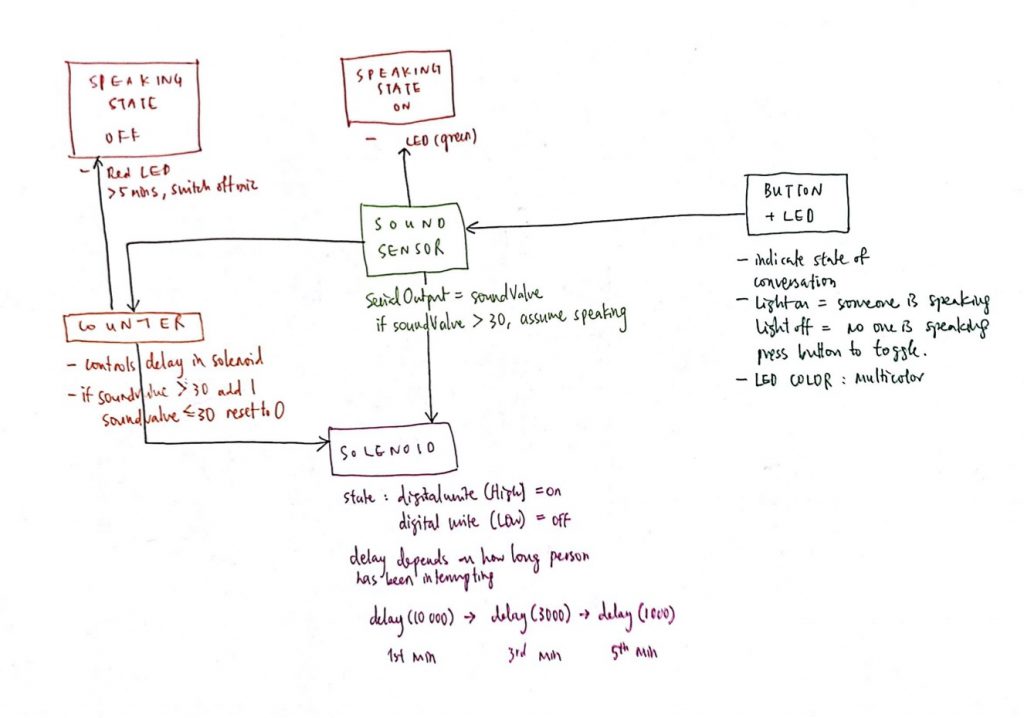 SPEAKING
STATE
OFF
- Red LED
>5 mins, switch off mic
SPEAKING
STATE
ON
- LED (green)
SOUND
SENSOR
serialOutput = soundValue
if soundValue > 30, assume speaking
BUTTON
+ LED
- indicate state of
conversation
- Light on = someone is speaking
Light off = no one is speaking
press button to toggle.
- LED COLOR : Multicolor
COUNTER
- controls delay in solenoid
- if soundvalue > 30 add 1
soundvalue ≤30 reset to 0
SOLENOID
state : digitalwrite (High) = on
digital write (LOW) = off
delay depends on how long person
has been interrupting
delay(10 000) → delay(3000) → delay(1000)
1st min 3rd min 5th min